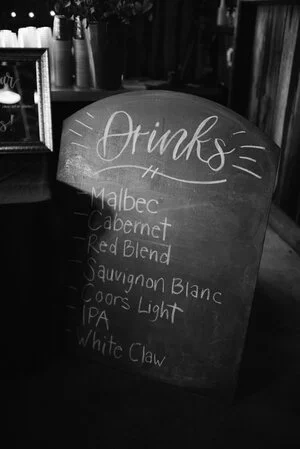 Drinks
- Malbec
- Cabernet
- Red Blend
- Sauvignon Blanc
- Coors Light
- IPA
- White Claw